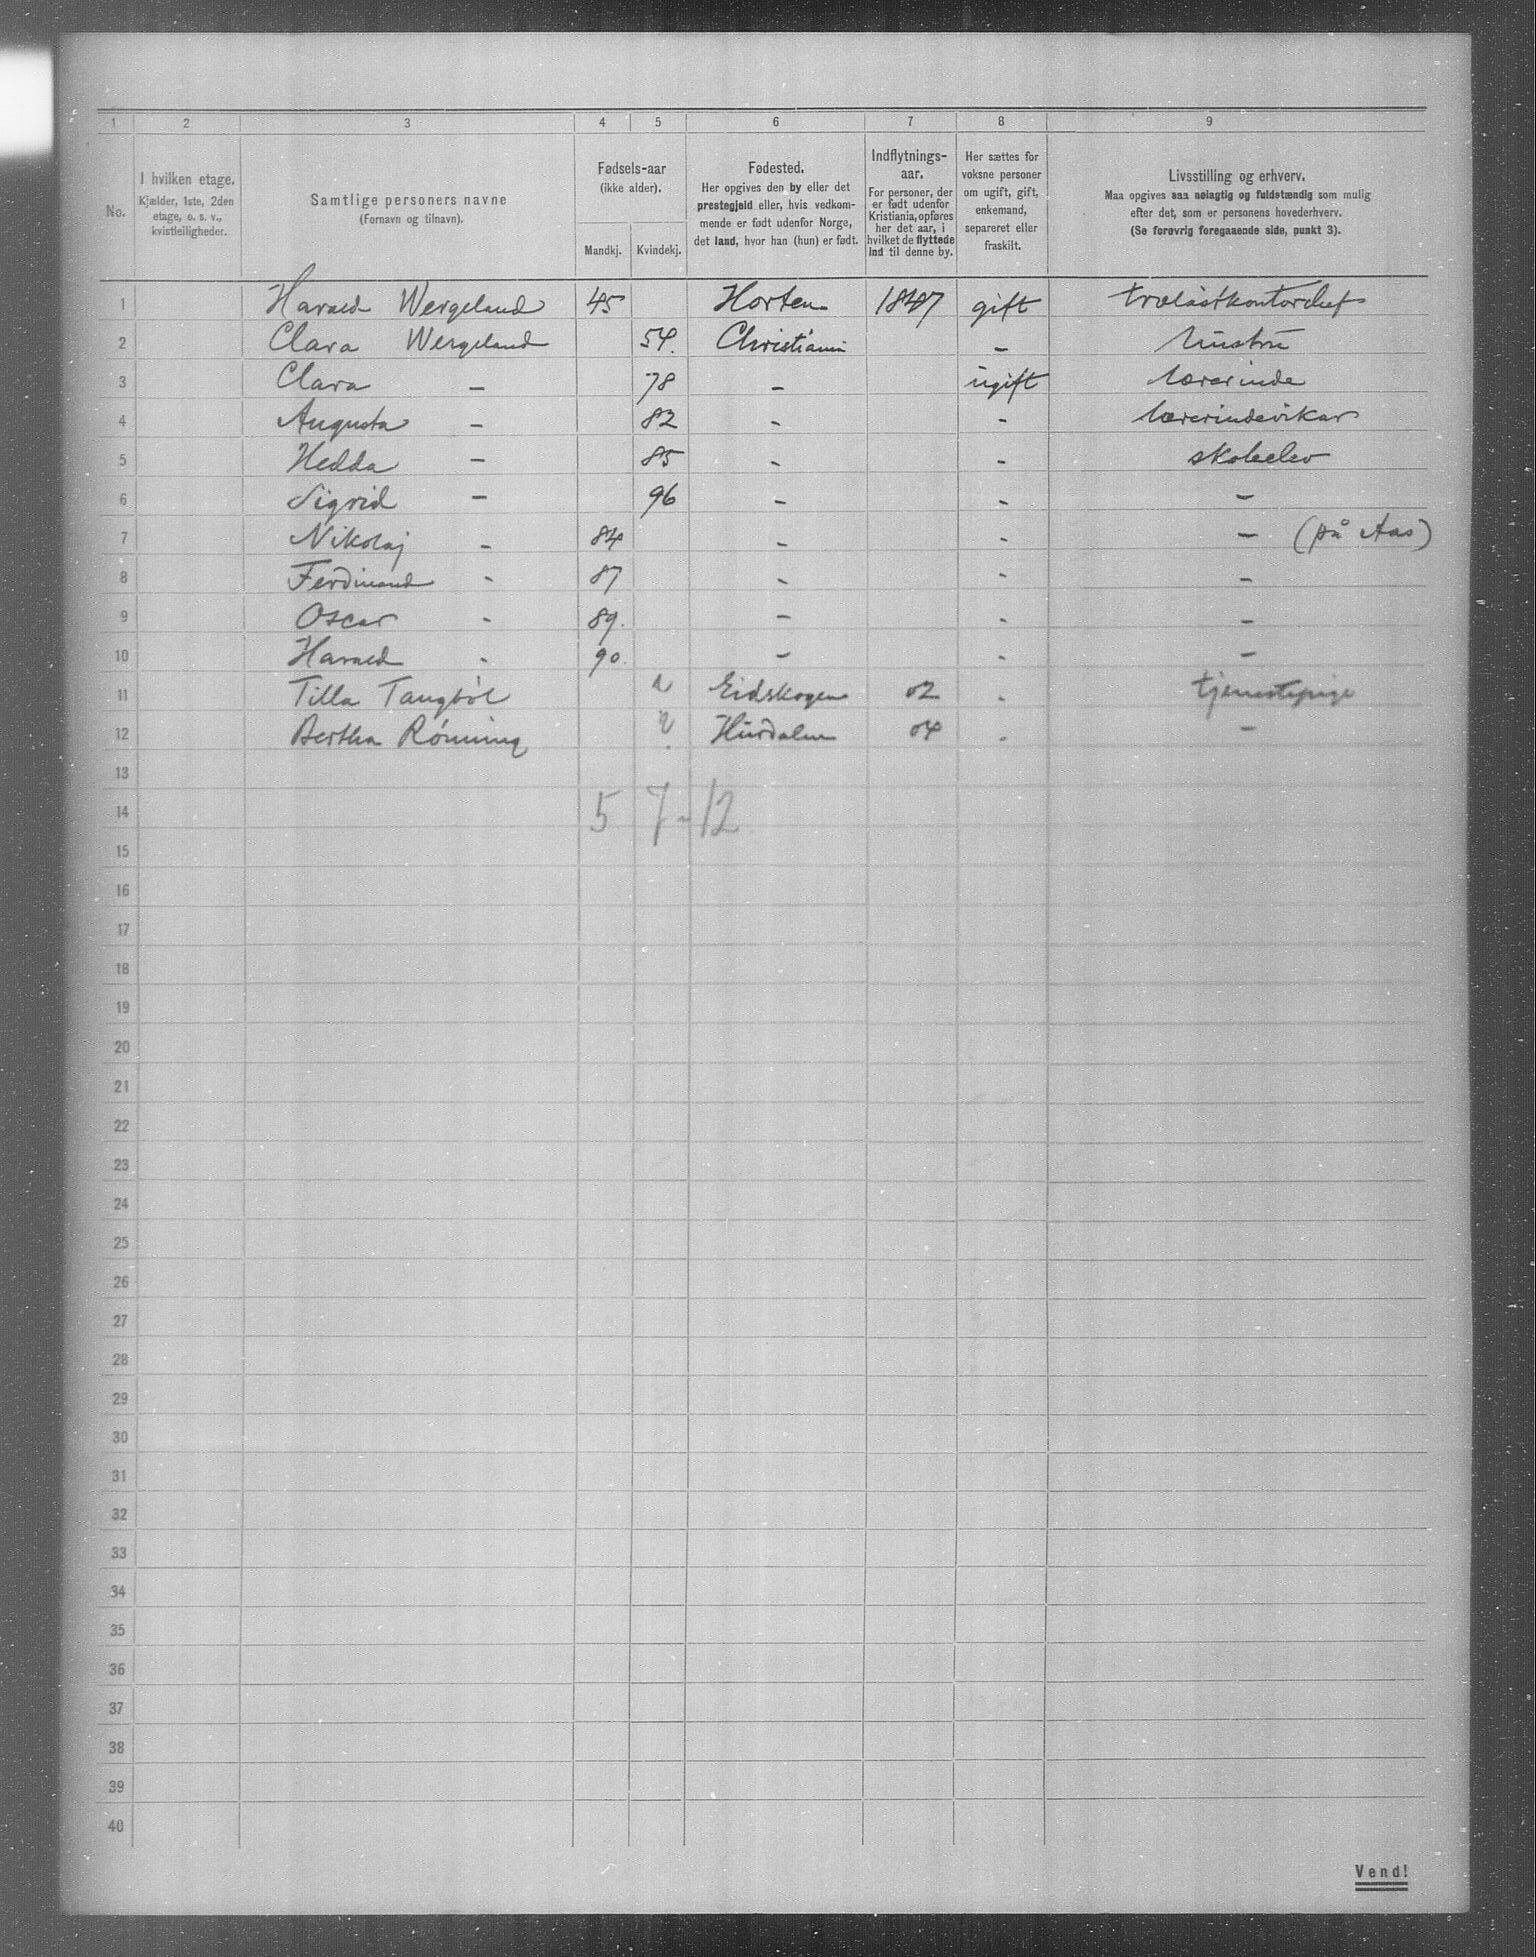 1 2 3 4 5 6 7 8 9
No.
I hvilken etage.
Kjælder, 1ste, 2den
etage, o. s. v.,
kvistleiligheder.
Samtlige personers navne
(Fornavn og tilnavn).
Fødsels-aar
(ikke alder).
Mandkj. Kvindekj.
Fødested.
Her opgives den by eller det
prestegjeld eller, hvis vedkom-
mende er født udenfor Norge,
det land, hvor han (hun) er født.
Indflytnings-
aar.
For personer, der
er født udenfor
Kristiania, opføres
her det aar, i
hvilket de flyttede
ind til denne by.
Her sættes for
voksne personer
om ugift, gift,
enkemand,
separeret eller
fraskilt.
Livsstilling og erhverv.
Maa opgives saa nøiagtig og fuldstændig som mulig
efter det, som er personens hovederhverv.
(Se forøvrig foregaaende side, punkt 3).
1 Harald Wergeland 45 Horten 1847 gift trælastkontorchef
2 Clara Wergeland 54. Christiania - hustru
3 Clara - 78 - ugift lærerinde
4 Augusta - 82 - - lærerindevikar
5 Hedda - 85 - - skoleelev
6 Sigrid - 96 - - -
7 Nikolaj - 84 - - - (på Aas)
8 Ferdinand - 87 - - -
9 Oscar - 89. - - -
10 Harald - 90. - - -
11 Tilla Tangböl Eidskogen 02 - tjenestepige
12 Bertha Rönning Hurdalen 04 - -
13
14 5 7-12
15
16
17
18
19
20
21
22
23
24
25
26
27
28
29
30
31
32
33
34
35
36
37
38
39
40
Vend!